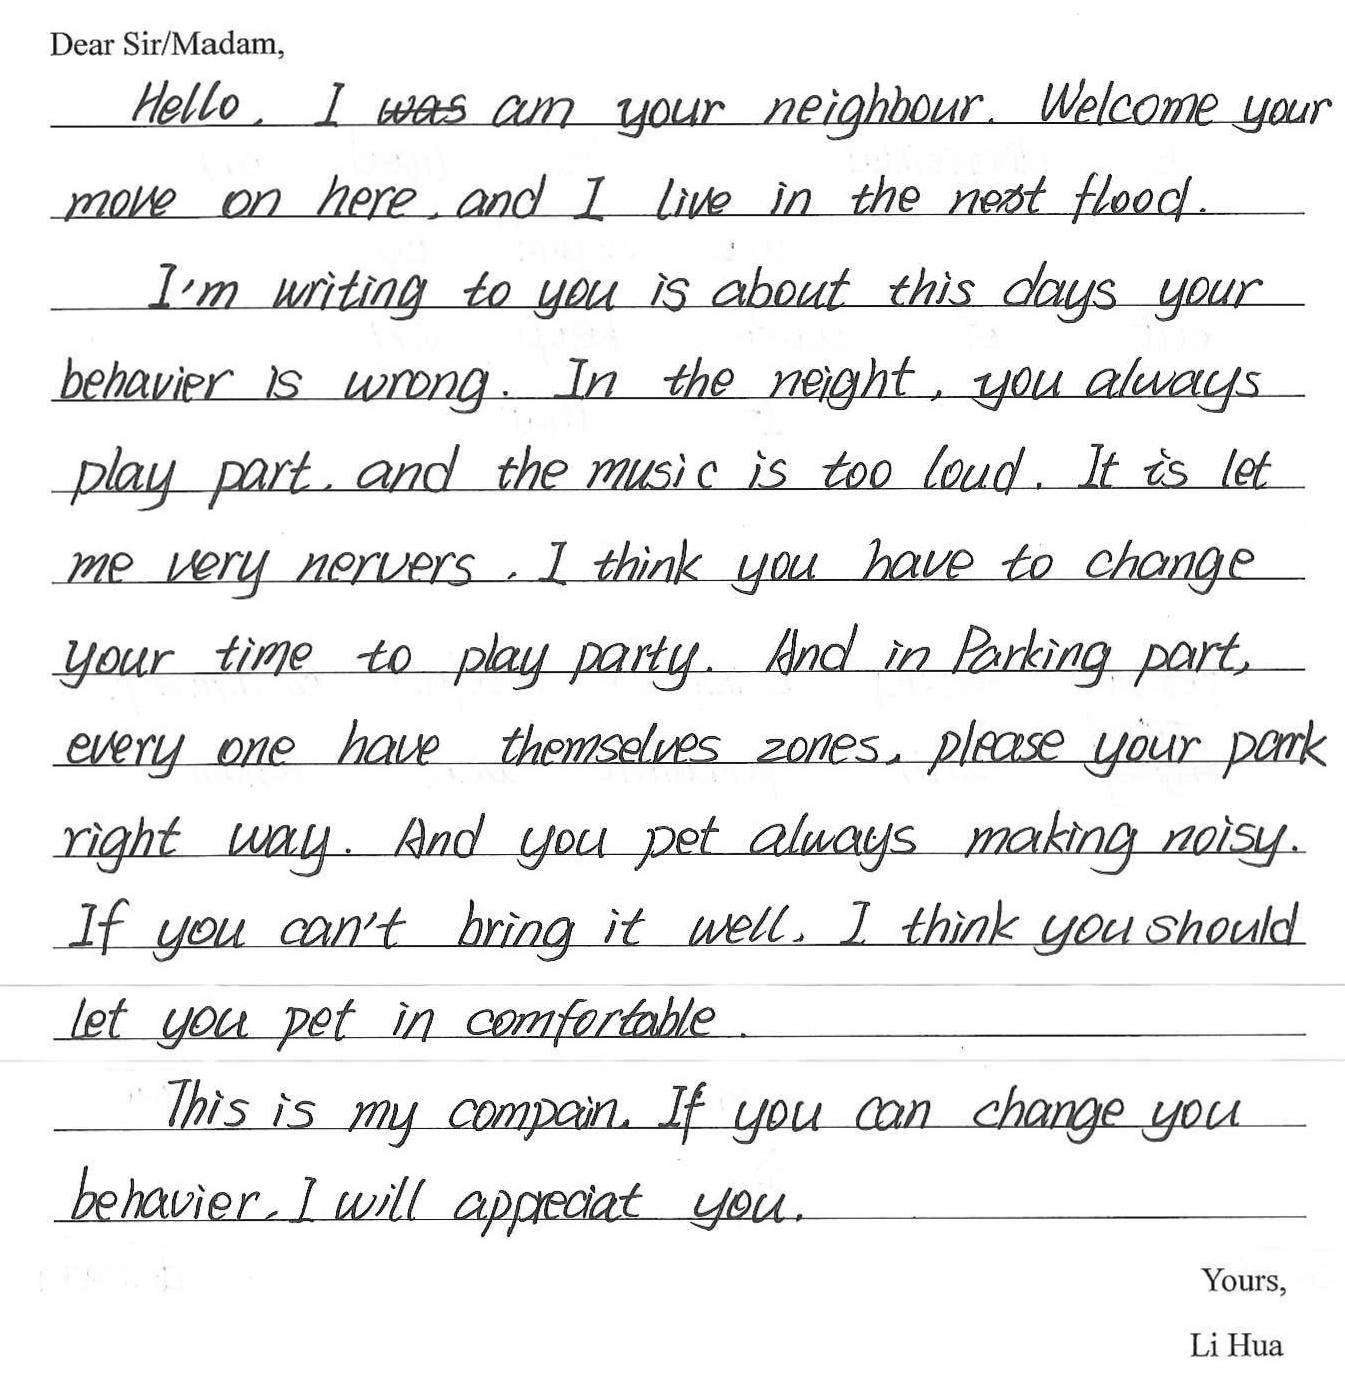 Dear Sir/Madam,
Hello, I was am your neighbour. Welcome your
move on here, and I live in the next flood.
I'm writing to you is about this days your
behavier is wrong. In the neight, you always
play part, and the music is too loud. It is let
me very nervers. I think you have to change
your time to play party. And in Parking part,
every one have themselves zones, please your park
right way. And you pet always making noisy.
If you can't bring it well, I think you should
let you pet in comfortable.
This is my compain. If you can change you
behavier, I will appreciat you.
Yours,
Li Hua